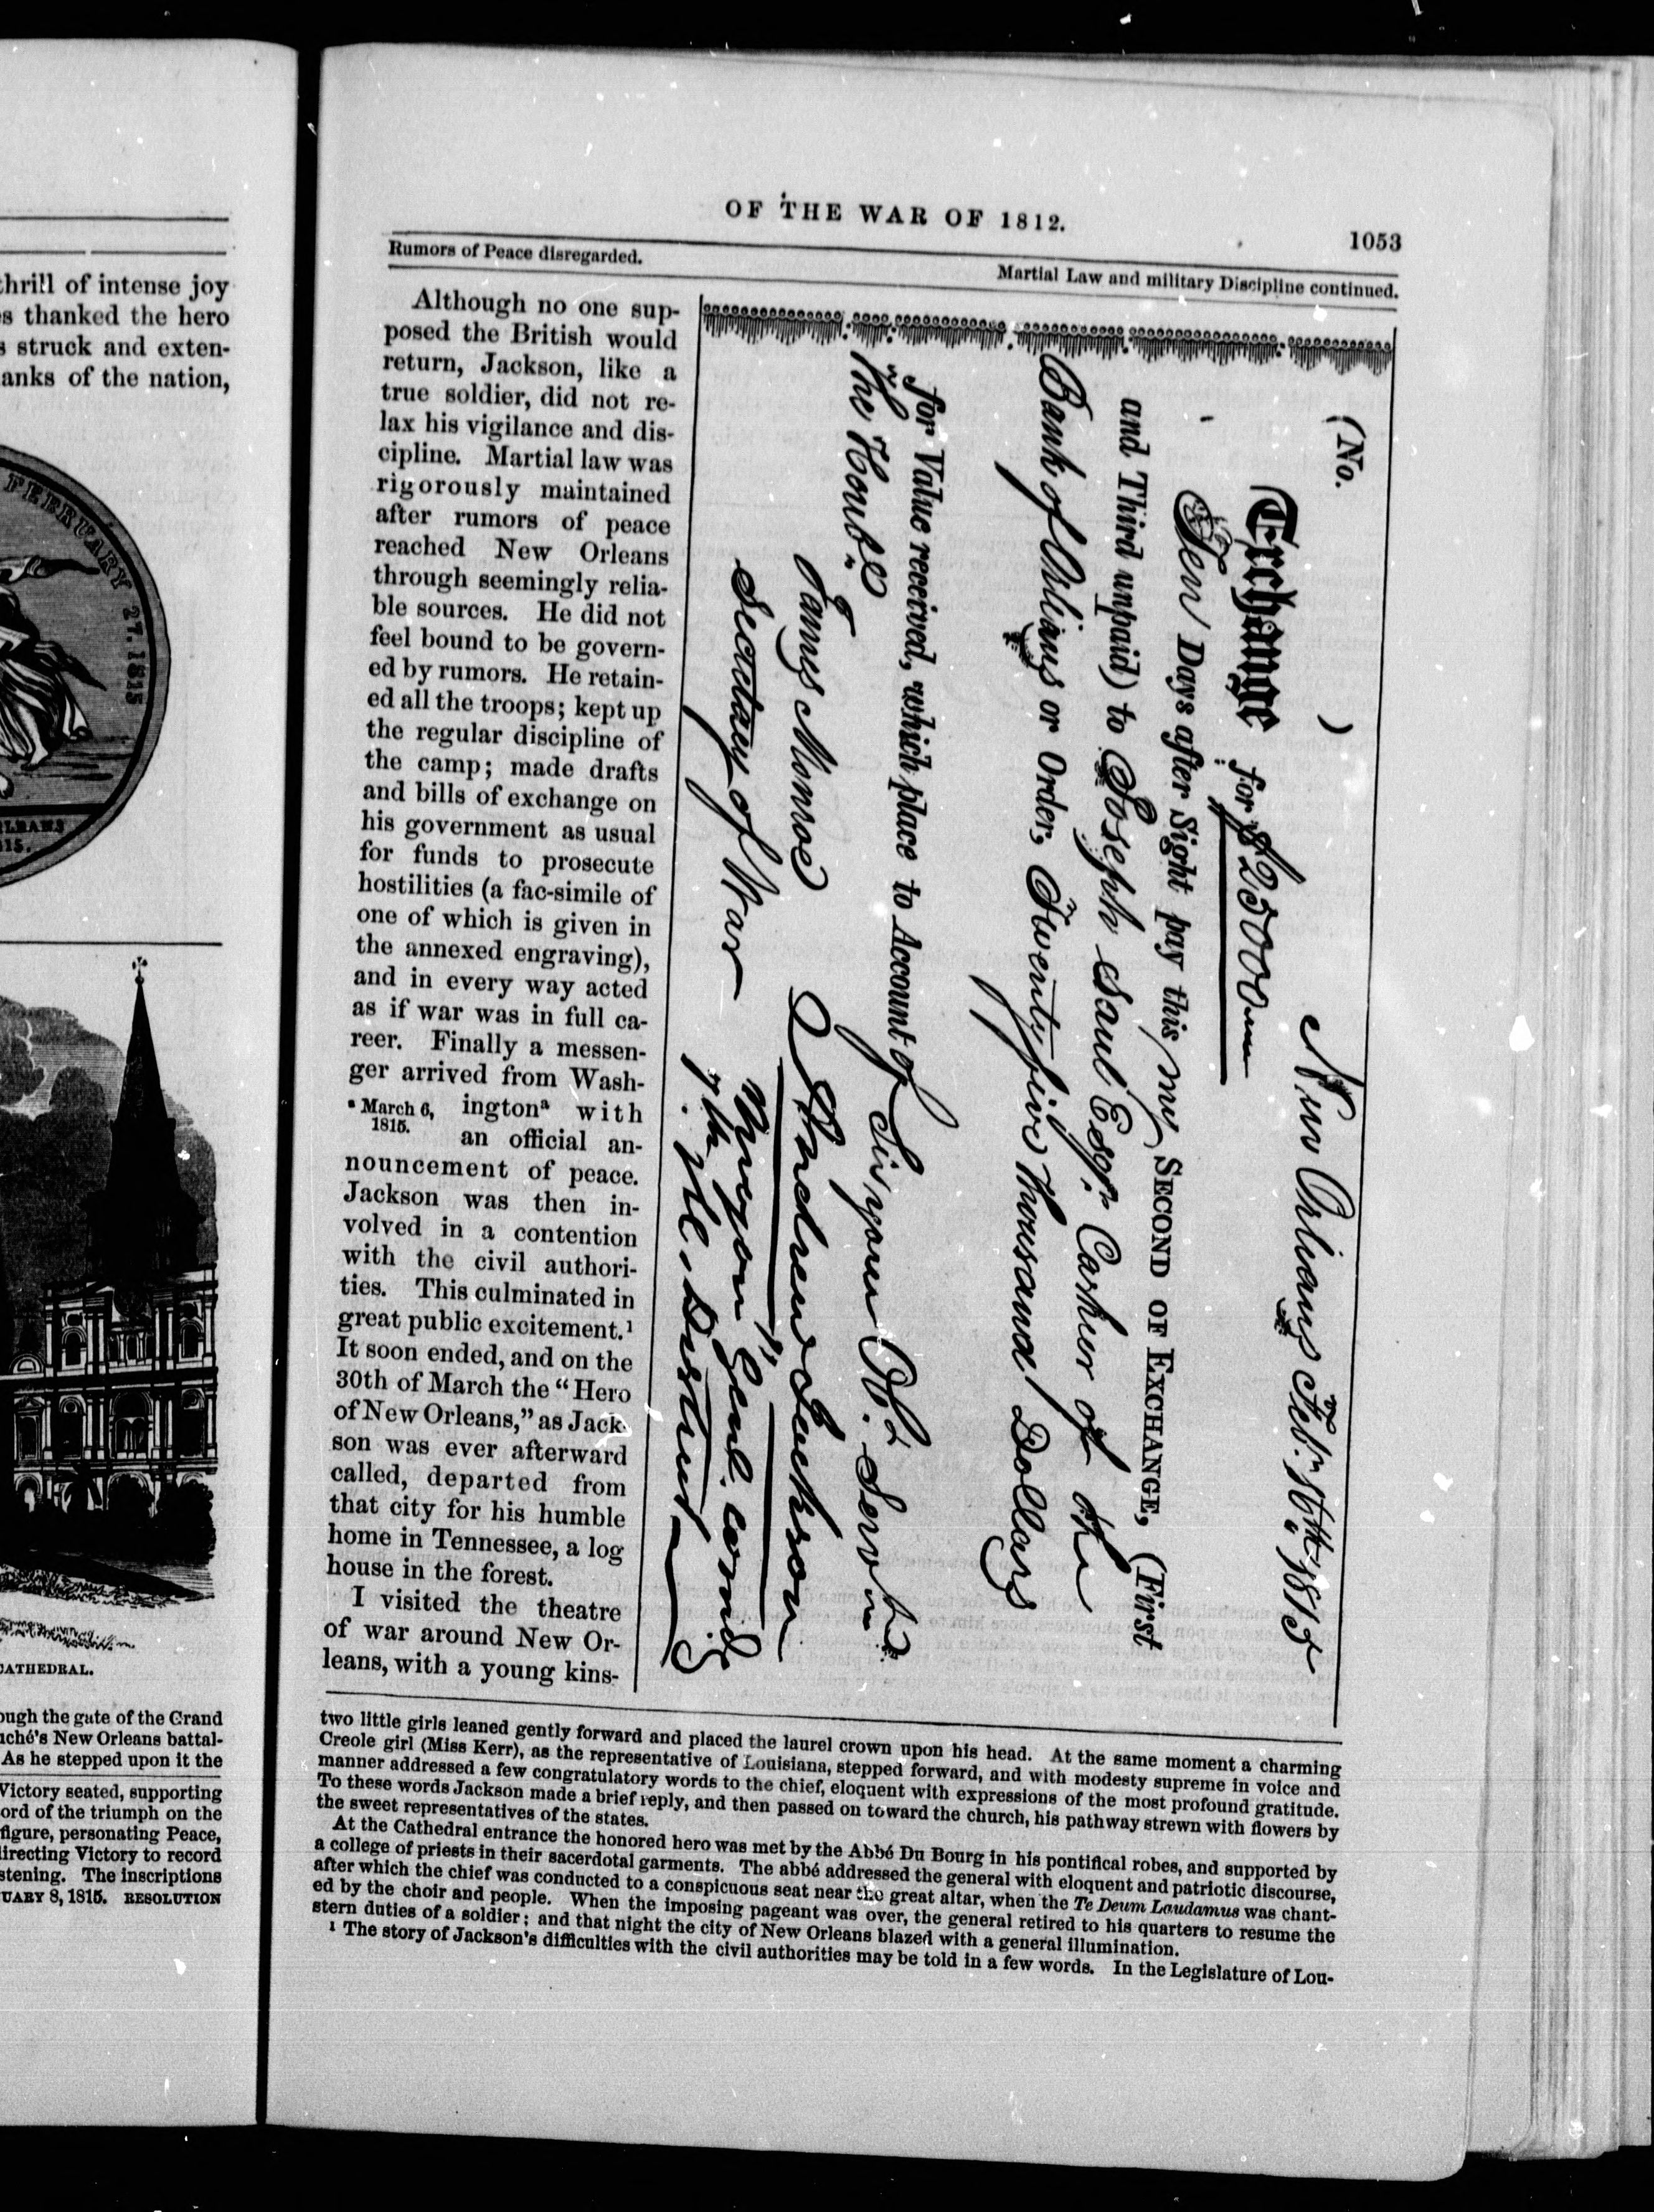 thrill of intense joy
es thanked the hero
s struck and exten-
anks of the nation,
FEBRUARY 27. 1815
RLEANS
15.
CATHEDRAL.
ough the gate of the Grand
uché's New Orleans battal-
As he stepped upon it the
Victory seated, supporting
ord of the triumph on the
figure, personating Peace,
directing Victory to record
stening. The inscriptions
UARY 8, 1815. RESOLUTION
OF THE WAR OF 1812.
1053
Rumors of Peace disregarded.
Martial Law and military Discipline continued.
Although no one sup-
posed the British would
return, Jackson, like a
true soldier, did not re-
lax his vigilance and dis-
cipline. Martial law was
rigorously maintained
after rumors of peace
reached New Orleans
through seemingly relia-
ble sources. He did not
feel bound to be govern-
ed by rumors. He retain-
ed all the troops; kept up
the regular discipline of
the camp; made drafts
and bills of exchange on
his government as usual
for funds to prosecute
hostilities (a fac-simile of
one of which is given in
the annexed engraving),
and in every way acted
as if war was in full ca-
reer. Finally a messen-
ger arrived from Wash-
a March 6, 1815.
ingtona with
an official an-
nouncement of peace.
Jackson was then in-
volved in a contention
with the civil authori-
ties. This culminated in
great public excitement.1
It soon ended, and on the
30th of March the "Hero
of New Orleans," as Jack-
son was ever afterward
called, departed from
that city for his humble
home in Tennessee, a log
house in the forest.
I visited the theatre
of war around New Or-
leans, with a young kins-
(No. ) New Orleans Feby. 16th 1815
Exchange for $25000
Ten Days after Sight pay this my SECOND OF EXCHANGE, (First
and Third unpaid) to Joseph Saul Esqr. Cashier of the
Bank of Orleans or Order, Twenty five Thousand Dollars
for Value received, which place to Account of Sir your Obt. Servt
The Honble
James Monroe Andrew Jackson
Secretary of War Major Genl. comdg
7th Ml. District
two little girls leaned gently forward and placed the laurel crown upon his head. At the same moment a charming
Creole girl (Miss Kerr), as the representative of Louisiana, stepped forward, and with modesty supreme in voice and
manner addressed a few congratulatory words to the chief, eloquent with expressions of the most profound gratitude.
To these words Jackson made a brief reply, and then passed on toward the church, his pathway strewn with flowers by
the sweet representatives of the states.
At the Cathedral entrance the honored hero was met by the Abbé Du Bourg in his pontifical robes, and supported by
a college of priests in their sacerdotal garments. The abbé addressed the general with eloquent and patriotic discourse,
after which the chief was conducted to a conspicuous seat near the great altar, when the Te Deum Laudamus was chant-
ed by the choir and people. When the imposing pageant was over, the general retired to his quarters to resume the
stern duties of a soldier; and that night the city of New Orleans blazed with a general illumination.
1 The story of Jackson's difficulties with the civil authorities may be told in a few words. In the Legislature of Lou-